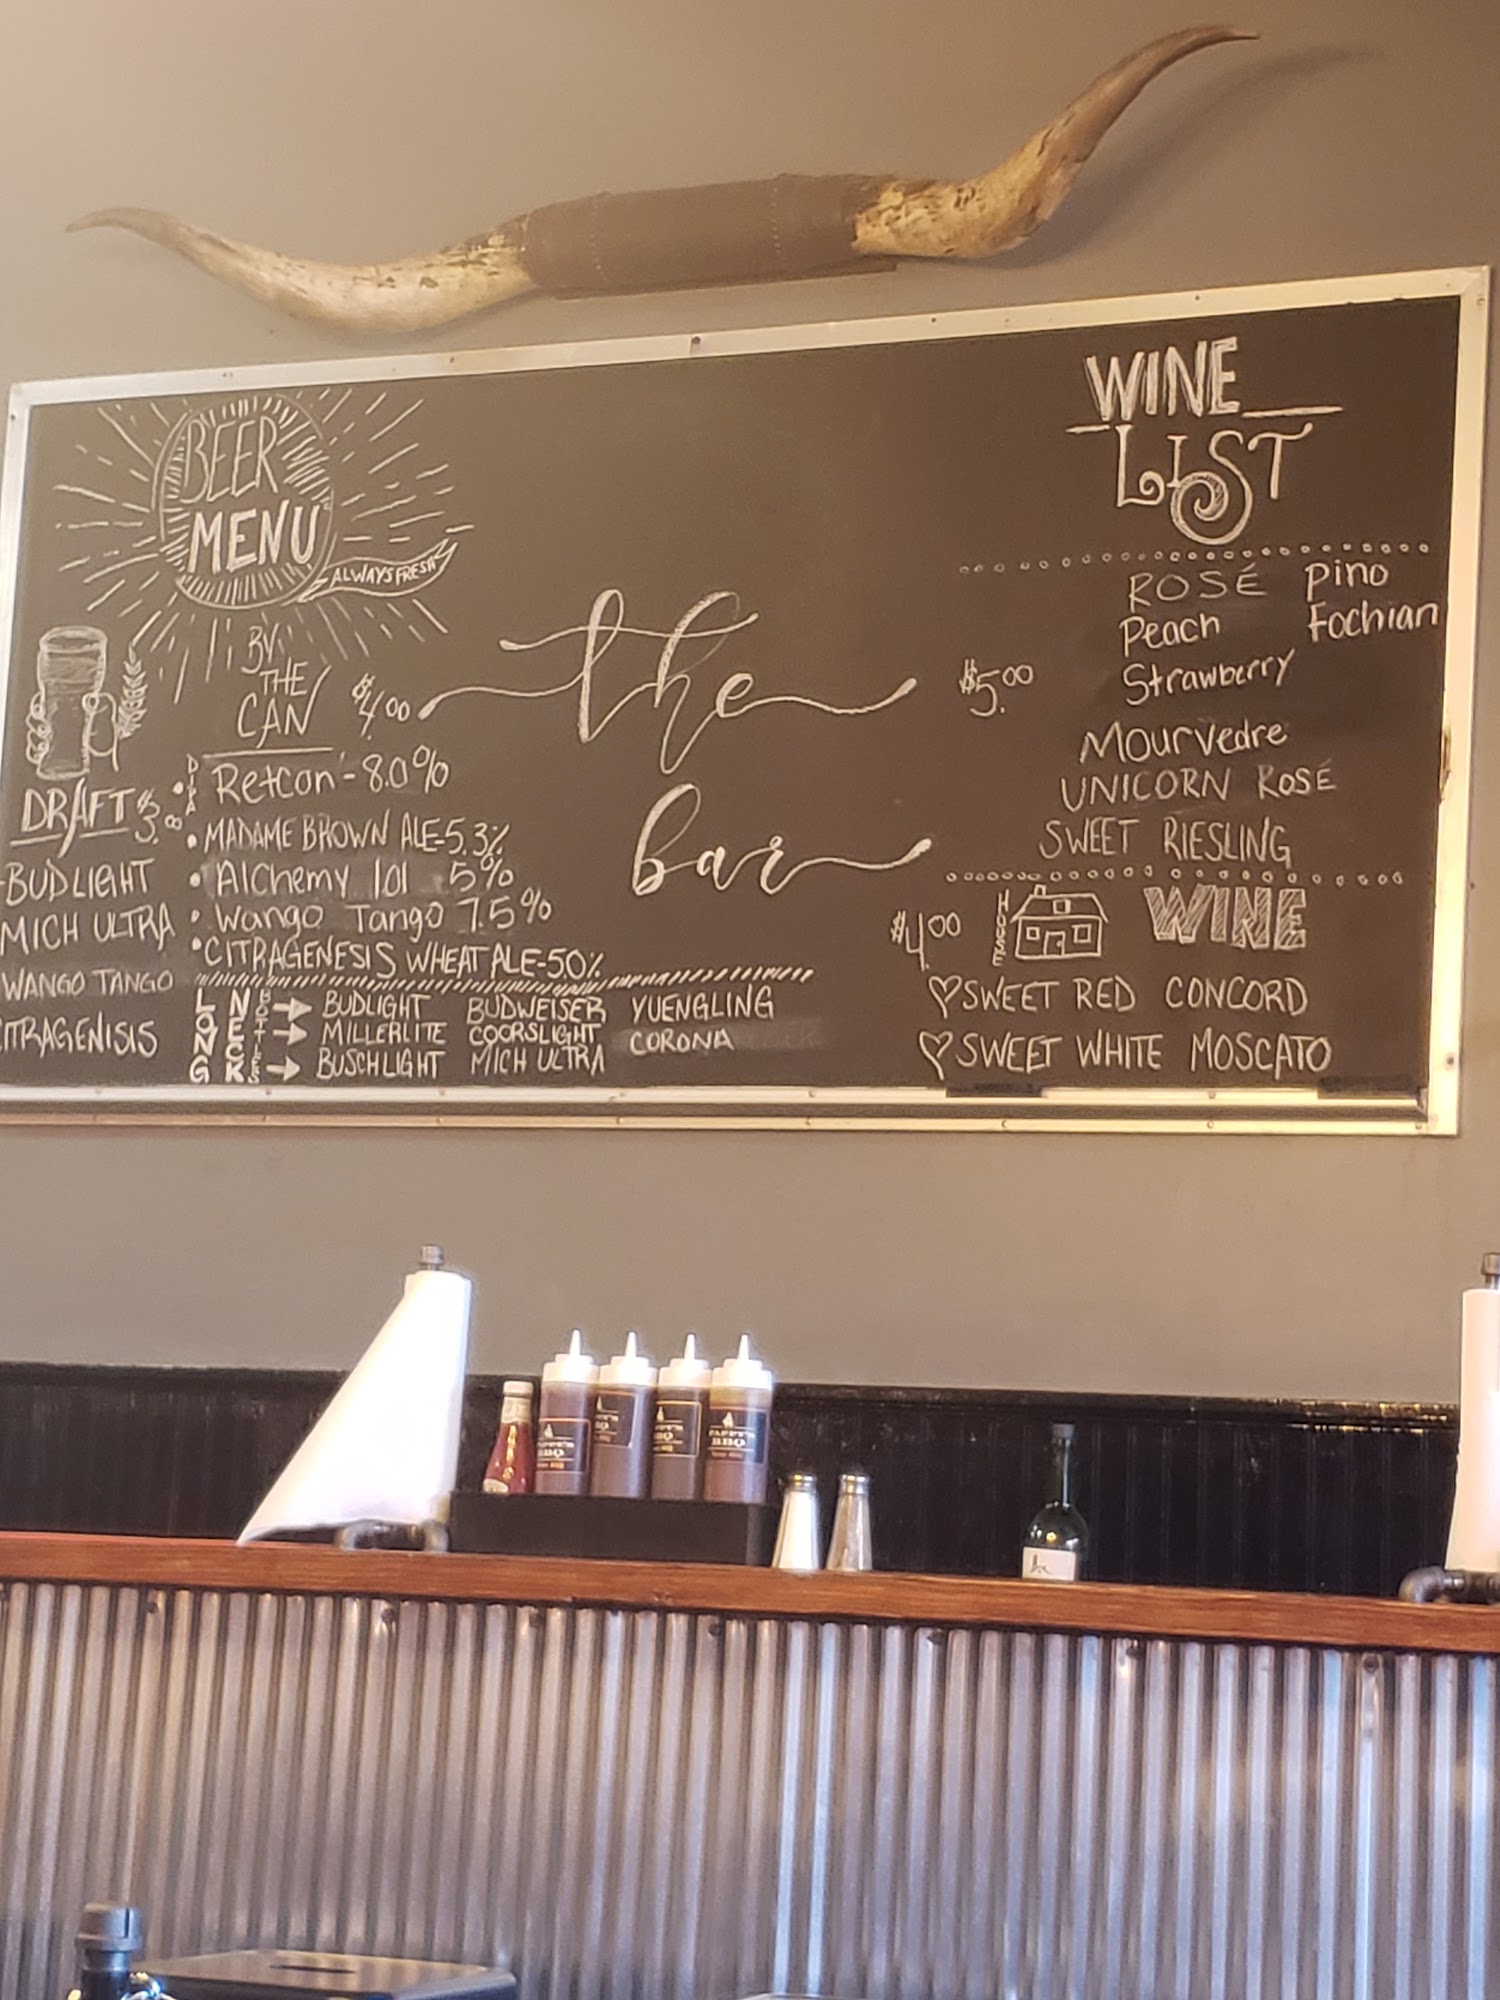 BEER
MENU
ALWAYS FRESH
BY
THE
CAN $4.00
DRAFT $3.00
BUDLIGHT
MICH ULTRA
WANGO TANGO
CITRAGENISIS
DIPA Retcon - 8.0%
• MADAME BROWN ALE-5.3%
• Alchemy 101 5%
• Wango Tango 7.5%
• CITRAGENESIS WHEAT ALE-5.0%
LONG NECK BOTTLES
BUDLIGHT BUDWEISER YUENGLING
MILLERLITE COORSLIGHT CORONA
BUSCHLIGHT MICH ULTRA
the
bar
WINE
LIST
$5.00
ROSÉ Pino
Peach Fochian
Strawberry
Mourvedre
UNICORN ROSÉ
SWEET RIESLING
$4.00 HOUSE WINE
SWEET RED CONCORD
SWEET WHITE MOSCATO
PAPPY'S
BBQ